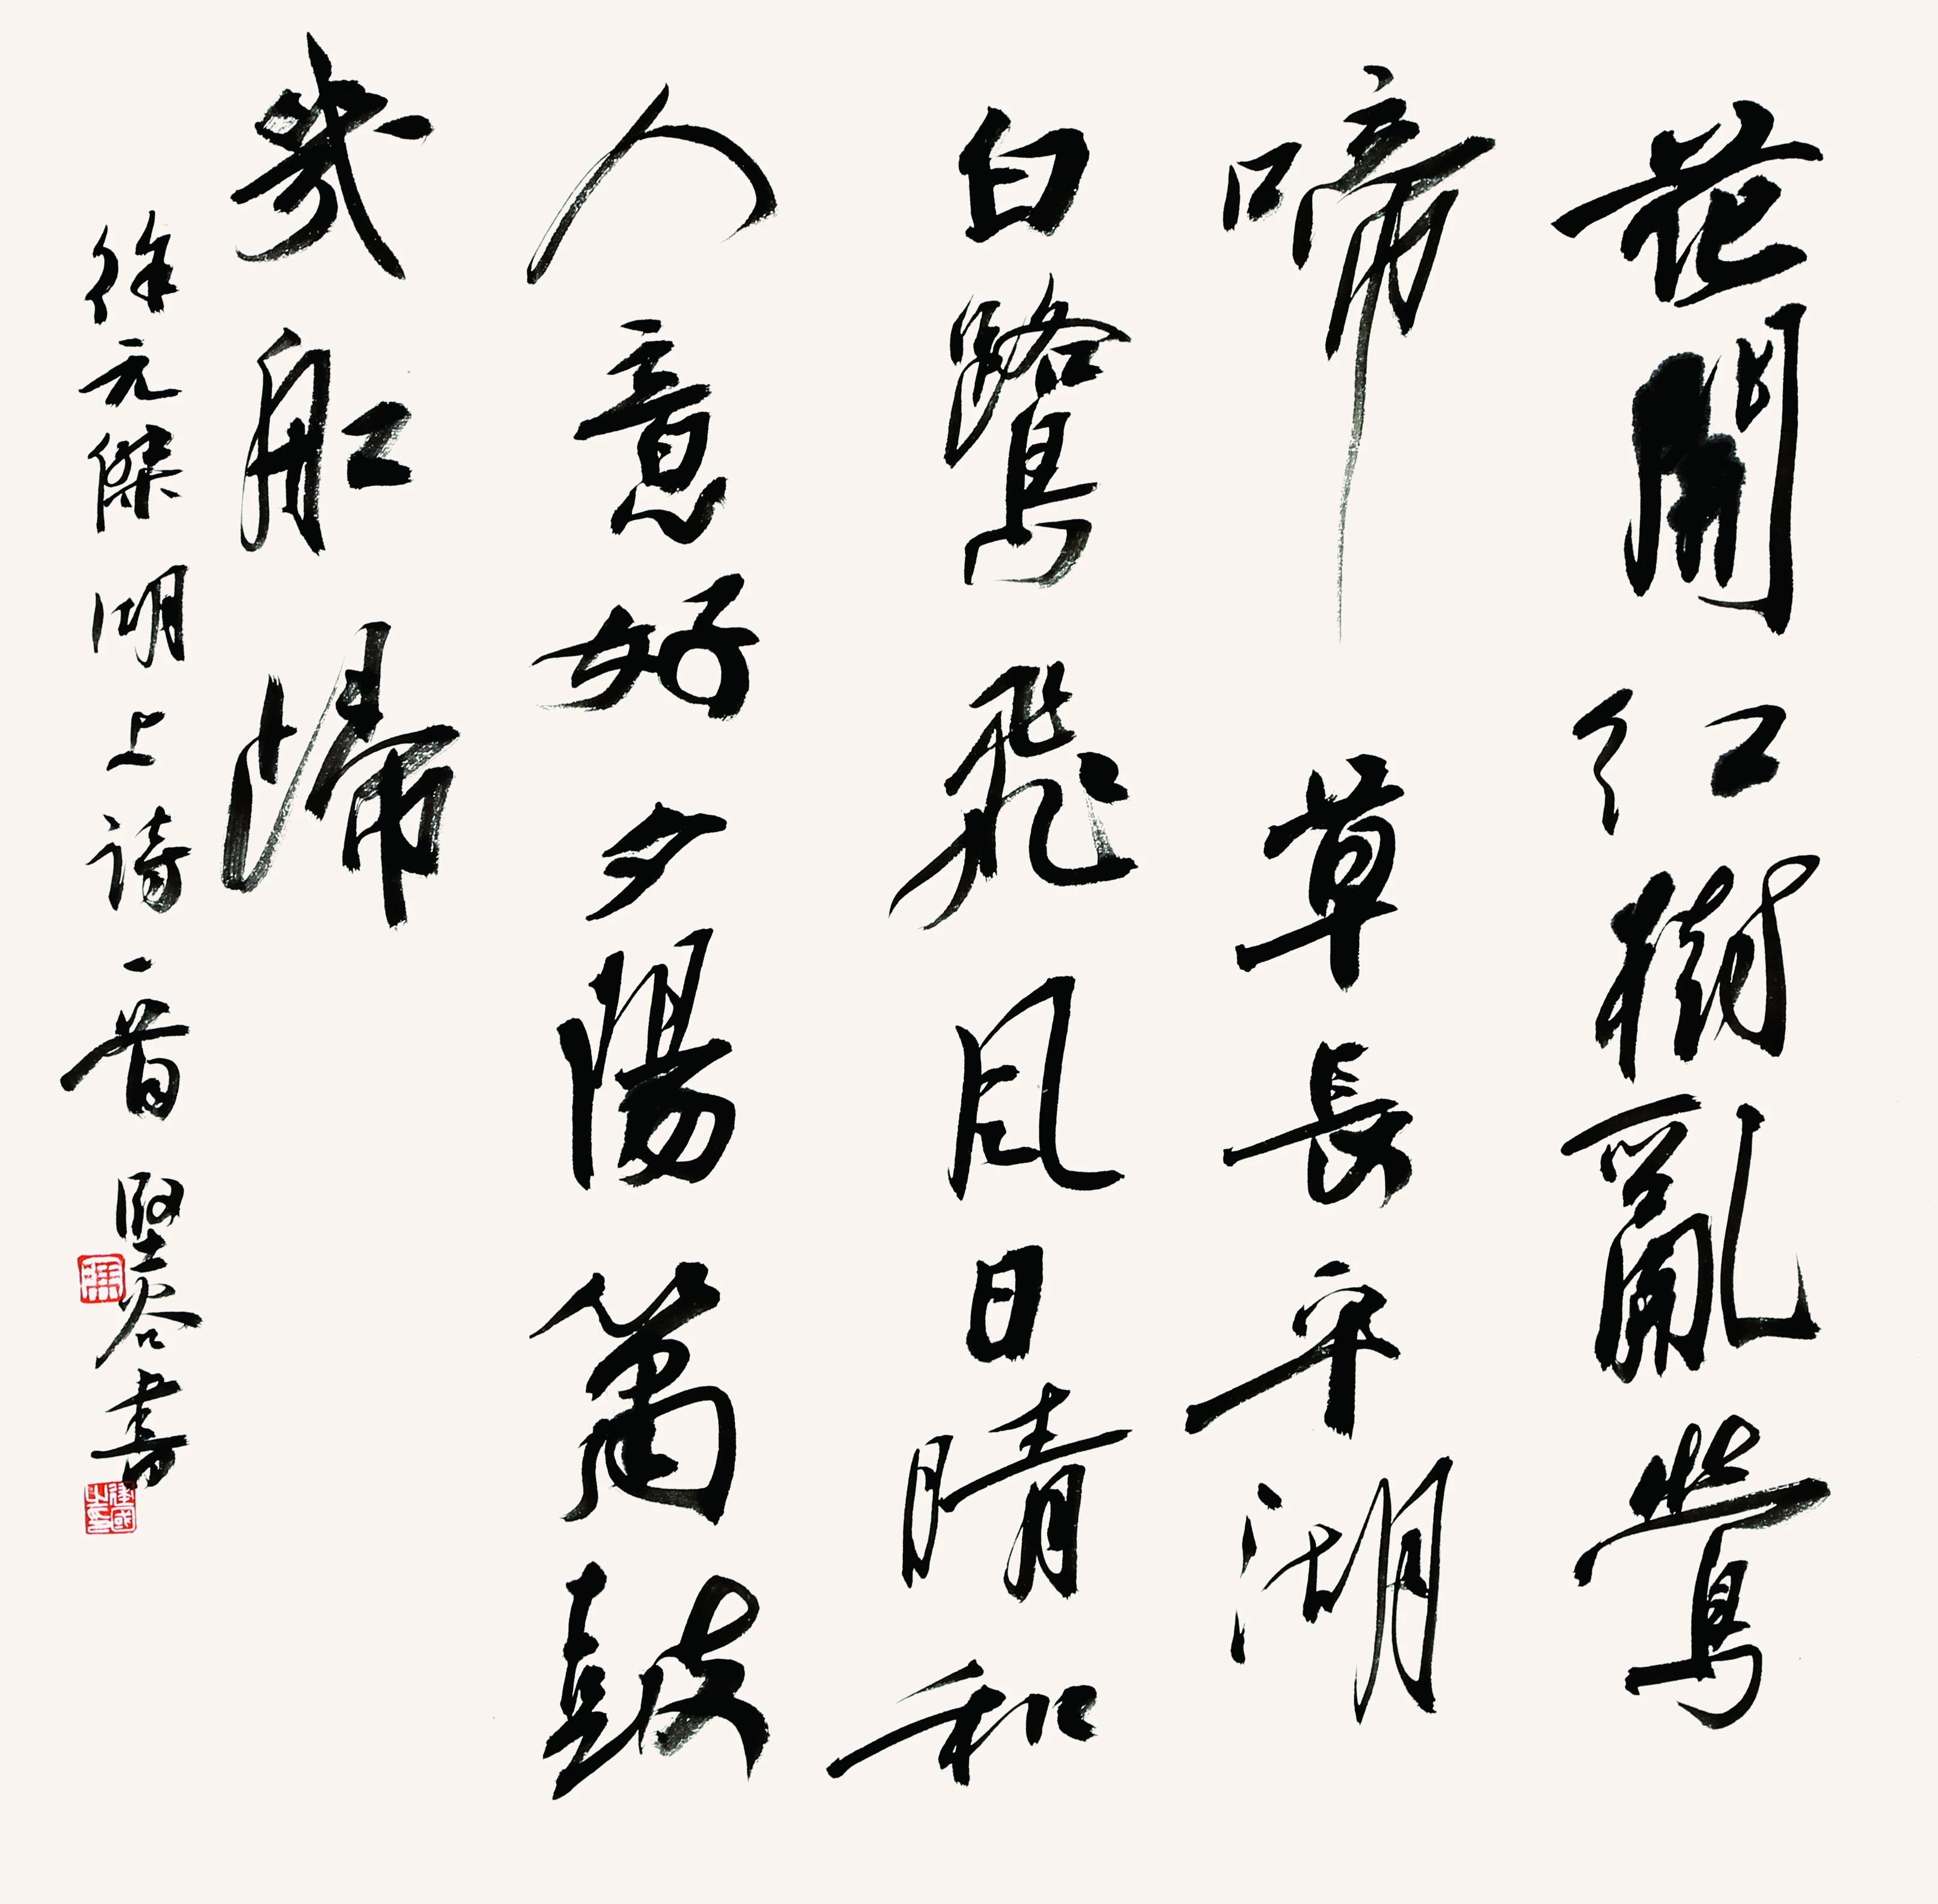 花開紅樹亂鶯
啼草長平湖
白鷺飛風日晴和
人意好夕陽簫鼓
幾船歸
徐元傑湖上詩一首 堅谷書